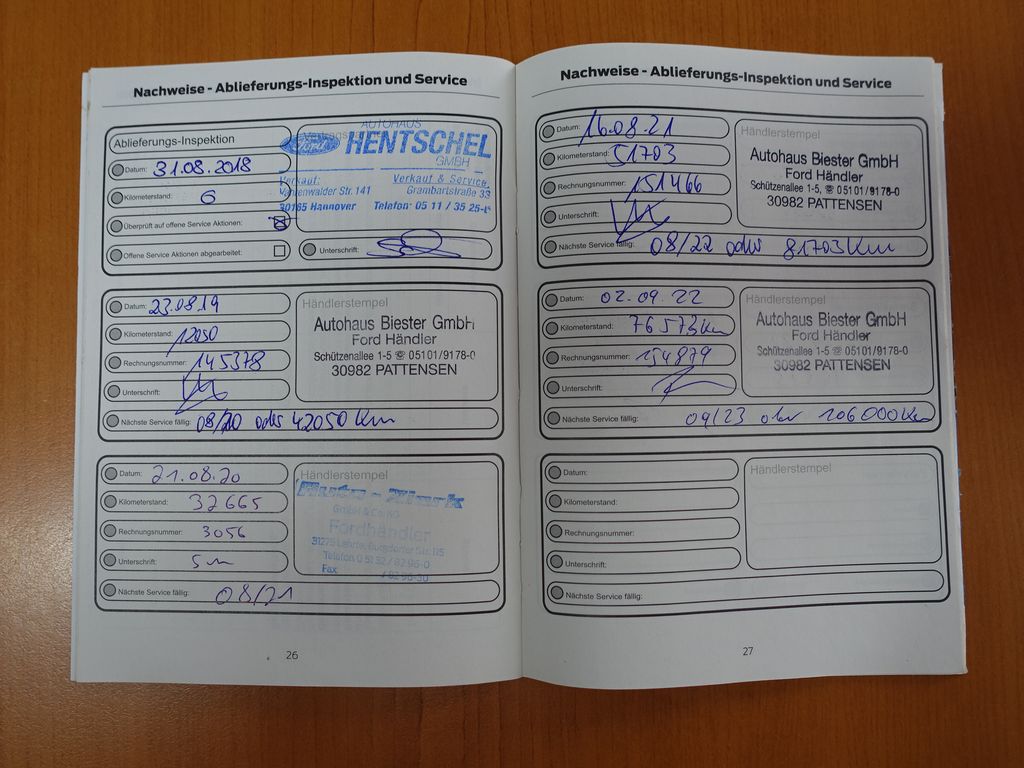 Nachweise - Ablieferungs-Inspektion und Service
Ablieferungs-Inspektion
Datum: 31.08.2018
Kilometerstand: 6
Überprüft auf offene Service Aktionen:
Offene Service Aktionen abgearbeitet:
AUTOHAUS
Ford
HENTSCHEL
GMBH
Verkauf:
Vahrenwalder Str. 141
30165 Hannover
Verkauf & Service
Grambartstraße 33
Telefon: 05 11 / 35 25-
Unterschrift:
Datum: 23.08.19
Kilometerstand: 12050
Rechnungsnummer: 145378
Unterschrift:
Händlerstempel
Autohaus Biester GmbH
Ford Händler
Schützenallee 1-5 ☏ 05101/9178-0
30982 PATTENSEN
Nächste Service fällig: 08/20 oder 42050 Km
Datum: 21.08.20
Kilometerstand: 32665
Rechnungsnummer: 3056
Unterschrift:
Händlerstempel
GmbH & Co. KG
Fordhändler
31275 Lehrte, Burgdorfer Str. 115
Telefon 0 51 32 / 82 96-0
Fax / 82 96-30
Nächste Service fällig: 08/21
26
Nachweise - Ablieferungs-Inspektion und Service
Datum: 16.08.21
Kilometerstand: 51703
Rechnungsnummer: 151466
Unterschrift:
Händlerstempel
Autohaus Biester GmbH
Ford Händler
Schützenallee 1-5, ☏ 05101/9178-0
30982 PATTENSEN
Nächste Service fällig: 08/22 oder 81703 Km
Datum: 02.09.22
Kilometerstand: 76573 Km
Rechnungsnummer: 154879
Unterschrift:
Händlerstempel
Autohaus Biester GmbH
Ford Händler
Schützenallee 1-5 ☏ 05101/9178-0
30982 PATTENSEN
Nächste Service fällig: 09/23 oder 106000 Km
Datum:
Kilometerstand:
Rechnungsnummer:
Unterschrift:
Händlerstempel
Nächste Service fällig:
27